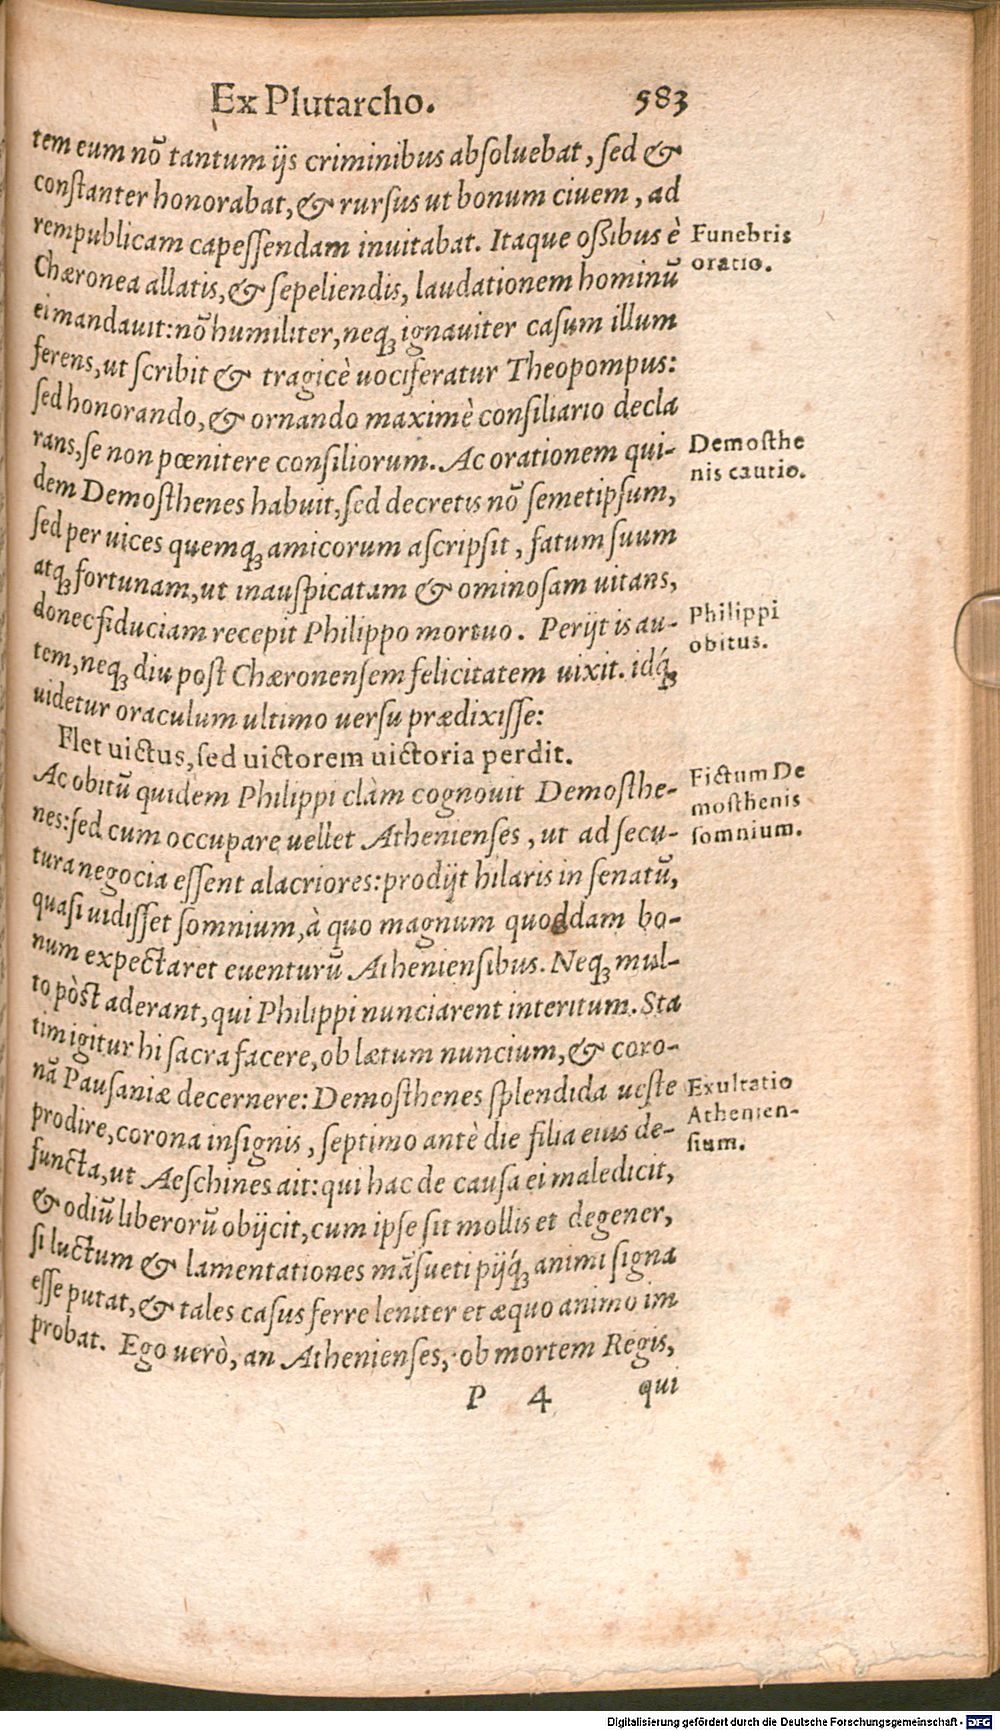 Ex Plutarcho. 583
tem eum nõ tantum ijs criminibus absoluebat, sed &
constanter honorabat, & rursus ut bonum ciuem, ad
rempublicam capessendam inuitabat. Itaque oßibus è
Chæronea allatis, & sepeliendis, laudationem hominũ
ei mandauit: nõ humiliter, neq; ignauiter casum illum
ferens, ut scribit & tragicè uociferatur Theopompus:
sed honorando, & ornando maximè consiliario decla
rans, se non pœnitere consiliorum. Ac orationem qui-
dem Demosthenes habuit, sed decretis nõ semetipsum,
sed per uices quemq; amicorum ascripsit, fatum suum
atq; fortunam, ut inauspicatam & ominosam uitans,
donec fiduciam recepit Philippo mortuo. Perijt is au-
tem, neq; diu post Chæronensem felicitatem uixit. idq́;
uidetur oraculum ultimo uersu prædixisse:
Flet uictus, sed uictorem uictoria perdit.
Ac obitũ quidem Philippi clàm cognouit Demosthe-
nes: sed cum occupare uellet Athenienses, ut ad secu-
tura negocia essent alacriores: prodijt hilaris in senatũ,
quasi uidisset somnium, à quo magnum quoddam bo-
num expectaret euenturũ Atheniensibus. Neq; mul-
to pòst aderant, qui Philippi nunciarent interitum. Sta
tim igitur hi sacra facere, ob lætum nuncium, & coro-
nã Pausaniæ decernere: Demosthenes splendida ueste
prodire, corona insignis, septimo antè die filia eius de-
functa, ut Aeschines ait: qui hac de causa ei maledicit,
& odiũ liberorũ obijcit, cum ipse sit mollis et degener,
si luctum & lamentationes mãsueti pijq́; animi signa
esse putat, & tales casus ferre leniter et æquo animo im
probat. Ego uerò, an Athenienses, ob mortem Regis,
P 4 qui
Funebris
oratio.
Demosthe
nis cautio.
Philippi
obitus.
Fictum De
mosthenis
somnium.
Exultatio
Athenien-
sium.
Digitalisierung gefördert durch die Deutsche Forschungsgemeinschaft - DFG